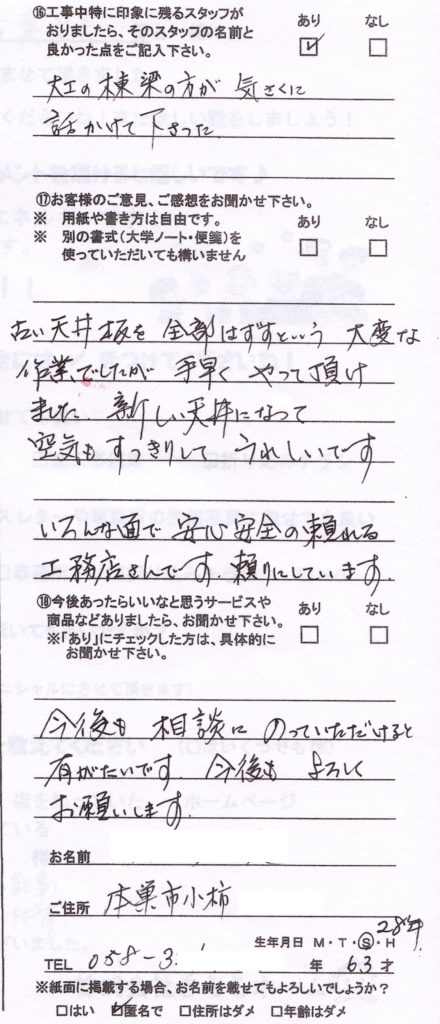 ⑯工事中特に印象に残るスタッフが
おりましたら、そのスタッフの名前と
良かった点をご記入下さい。
あり なし
☑ □
大工の棟梁の方が 気さくに
話かけて下さった
⑰お客様のご意見、ご感想をお聞かせ下さい。
※ 用紙や書き方は自由です。
※ 別の書式(大学ノート・便箋)を
使っていただいても構いません
あり なし
□ □
古い天井板を 全部はずすという 大変な
作業でしたが 手早く やって頂け
ました 新しい天井になって
空気もすっきりして うれしいです
いろんな面で 安心安全の頼れる
工務店さんです.頼りにしています.
⑱今後あったらいいなと思うサービスや
商品などありましたら、お聞かせ下さい。
※「あり」にチェックした方は、具体的に
お聞かせ下さい。
あり なし
□ □
今後も 相談に のっていただけると
有がたいです. 今後も よろしく
お願いします.
お名前
ご住所 本巣市小柿
生年月日 M・T・Ⓢ・H 28年
TEL 058-3 年 63才
※紙面に掲載する場合、お名前を載せてもよろしいでしょうか?
□はい ☑匿名で □住所はダメ □年齢はダメ